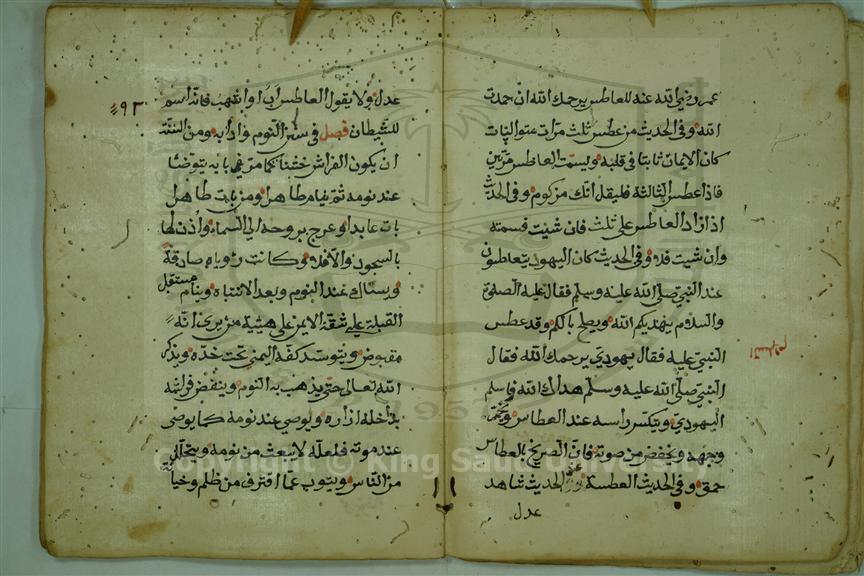 عمر رضي الله عنه للعاطس يرحمك الله ان حمدت
الله وفي الحديث من عطس ثلث مرات متواليات
كان الايمان ثابتا في قلبه ويسمت العاطس مرتين
فاذا عطس الثالثة فليقل انك مزكوم وفي الحديث
اذا زاد العاطس على ثلث فان شئت فسمته
وان شيت فلا وفي الحديث كان اليهود يتعاطسون
عند النبي صلى الله عليه وسلم فقال عليه الصلوة
والسلام يهديكم الله ويصلح بالكم وقد عطس
النبي عليه فقال يهودي يرحمك الله فقال
السلام
النبي صلى الله عليه وسلم هداك الله فاسلم
اليهودي وينكس رأسه عند العطاس ويخمر
وجهه ويخفض من صوته فان الصريخ بالعطاس
حمق وفي الحديث العطسة عند الحديث شاهد
عدل
٩٢
عدل ولا يقول العاطس اب او اشهب فانه اسم
للشيطان فصل في سنن النوم وآدابه ومن السنة
ان يكون الفراش خشنا كما مر في بابه يتوضأ
عند نومه ثم ينام طاهرا ومن بات طاهرا
بات عابدا وعرج بروحه الى السماء واذن لها
بالسجود والا فلا وكانت رؤياه صادقة
ويستاك عند النوم وبعد الانتباه وينام مستقبل
القبلة على شقه الايمن على هيئة من يرى انه
مقبوض ويتوسد كفه اليمنى تحت خده ويذكر
الله تعالى حتى يذهب به النوم وينفض فراشه
بداخلة ازاره ويوصي عند نومه كما يوصى
عند موته فلعله لا يبعث من نومه ويتحلل
من الناس ويتوب عما اقترف من ظلم وخيانة
Copyright © King Saud University